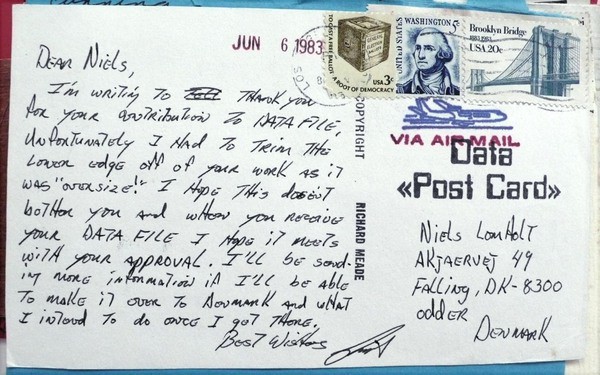 JUN 6 1983
TO CAST A FREE BALLOT
A ROOT OF DEMOCRACY
USA 3c
UNITED STATES
WASHINGTON 5c
Brooklyn Bridge
1883-1983
USA 20c
VIA AIR MAIL
Data
«Post Card»
COPYRIGHT RICHARD MEADE
DEAR NIELS,
I'M WRITING TO THANK YOU
FOR YOUR CONTRIBUTION TO DATA FILE,
UNFORTUNATELY I HAD TO TRIM THE
LOWER EDGE OFF OF YOUR WORK AS IT
WAS "OVERSIZE!" I HOPE THIS DOESN'T
BOTHER YOU AND WHEN YOU RECEIVE
YOUR DATA FILE I HOPE IT MEETS
WITH YOUR APPROVAL. I'LL BE SEND-
ING MORE INFORMATION IF I'LL BE ABLE
TO MAKE IT OVER TO DENMARK AND WHAT
I INTEND TO DO ONCE I GET THERE.
BEST WISHES
NIELS LOMHOLT
AKJAERVEJ 49
FALLING, DK-8300
ODDER
DENMARK